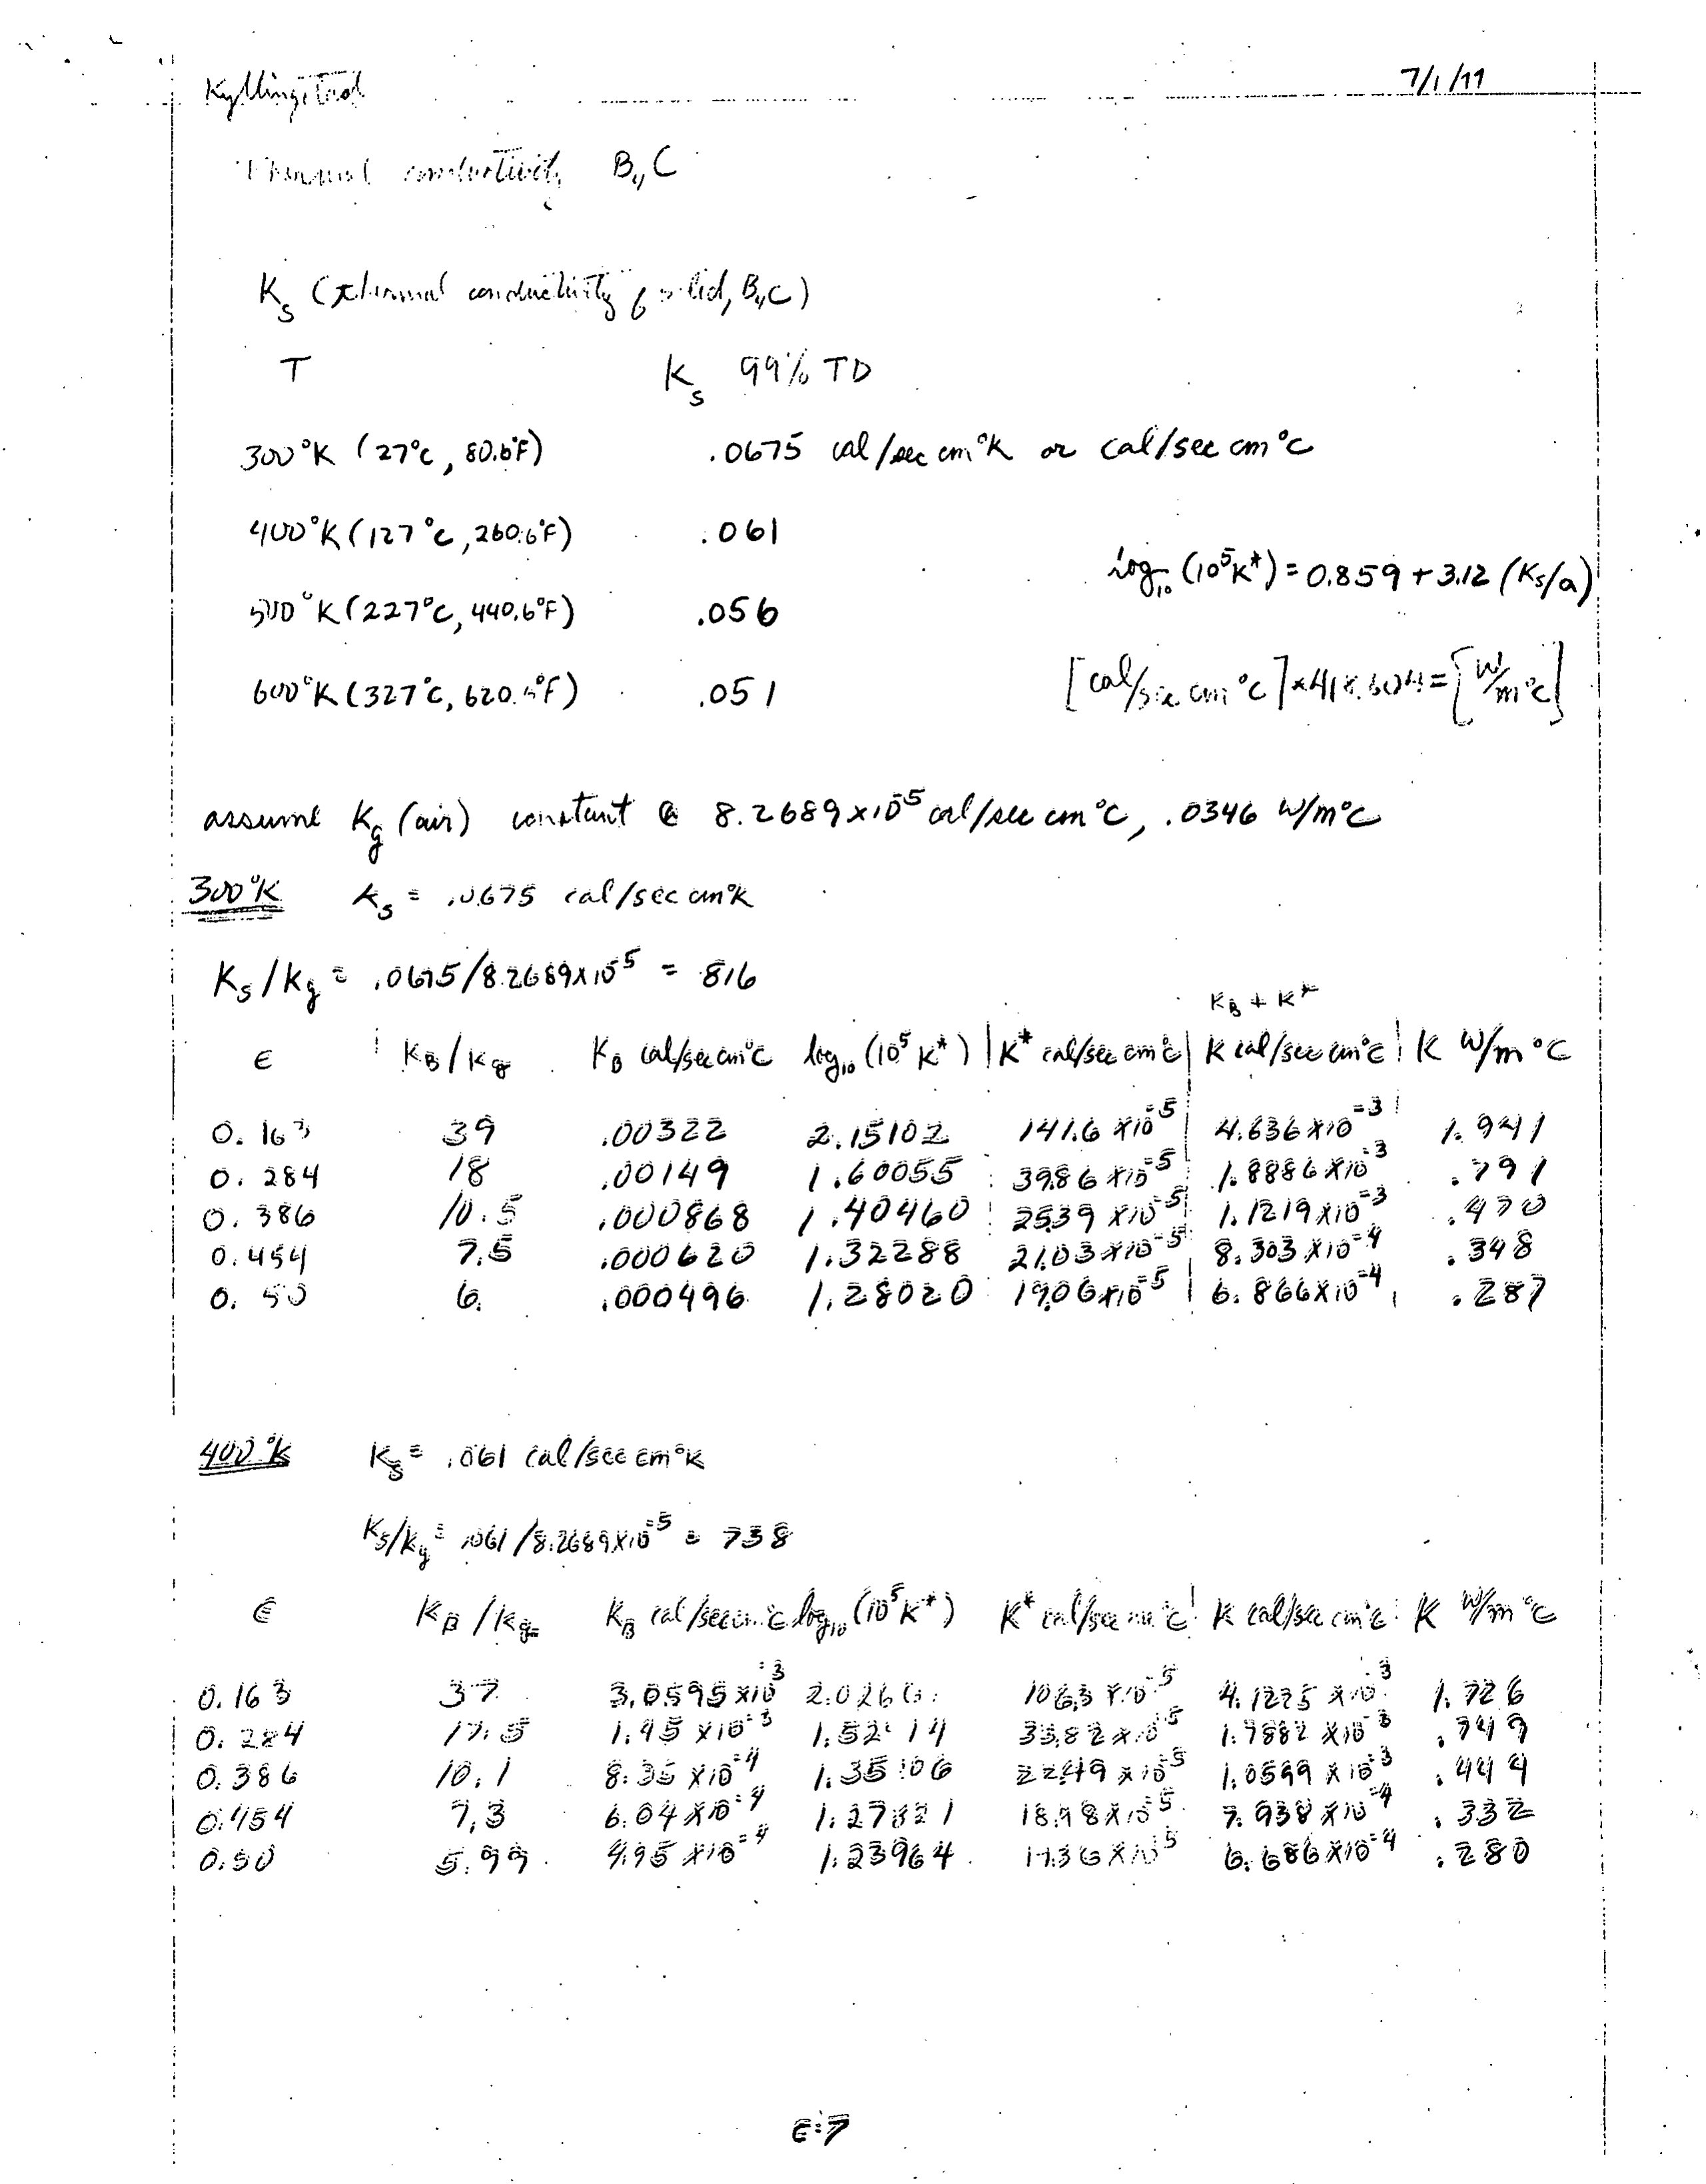 Kyllingstad 7/1/77
Thermal conductivity B4C
Ks (thermal conductivity of solid, B4C)
T Ks 99% TD
300°K (27°C, 80.6°F) .0675 cal/sec cm°K or cal/sec cm°C
400°K (127°C, 260.6°F) .061
log10 (10^5 K*) = 0.859 + 3.12 (Ks/a)
500°K (227°C, 440.6°F) .056
600°K (327°C, 620.6°F) .051
[cal/sec cm °C] × 418.604 = [W/m°C]
assume Kg (air) constant @ 8.2689×10^-5 cal/sec cm°C, .0346 W/m°C
300°K Ks = .0675 cal/sec cm°K
Ks/kg = .0675/8.2689×10^-5 = 816
KB + K*
ϵ KB/Kg KB cal/sec cm°C log10 (10^5 K*) K* cal/sec cm°C K cal/sec cm°C K W/m °C
0.163 39 .00322 2.15102 141.6 ×10^-5 4.636×10^-3 1.941
0.284 18 .00149 1.60055 39.86 ×10^-5 1.8886×10^-3 .791
0.386 10.5 .000868 1.40460 25.39 ×10^-5 1.1219×10^-3 .470
0.454 7.5 .000620 1.32288 21.03×10^-5 8.303×10^-4 .348
0.50 6. .000496 1.28020 19.06×10^-5 6.866×10^-4 .287
400°K Ks = .061 cal/sec cm°K
Ks/kg = .061/8.2689×10^-5 = 738
ϵ KB/Kg KB cal/sec cm°C log10 (10^5 K*) K* cal/sec cm°C K cal/sec cm°C K W/m °C
0.163 37 3.0595×10^-3 106.3 ×10^-5 4.1225 ×10^-3 1.726
0.284 17.5 1.45 ×10^-3 33.82×10^-5 1.7882 ×10^-3 .749
0.386 10.1 8.35 ×10^-4 1.35106 22.49 ×10^-5 1.0599 ×10^-3 .444
0.454 7.3 6.04×10^-4 1.27821 18.98×10^-5 7.938 ×10^-4 .332
0.50 5.99 4.95 ×10^-4 1.23964 17.36 ×10^-5 6.686×10^-4 .280
E-7